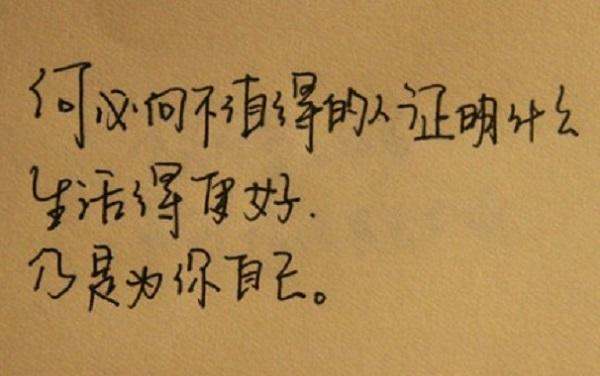 何必向不值得的人证明什么
生活得更好.
乃是为你自己。